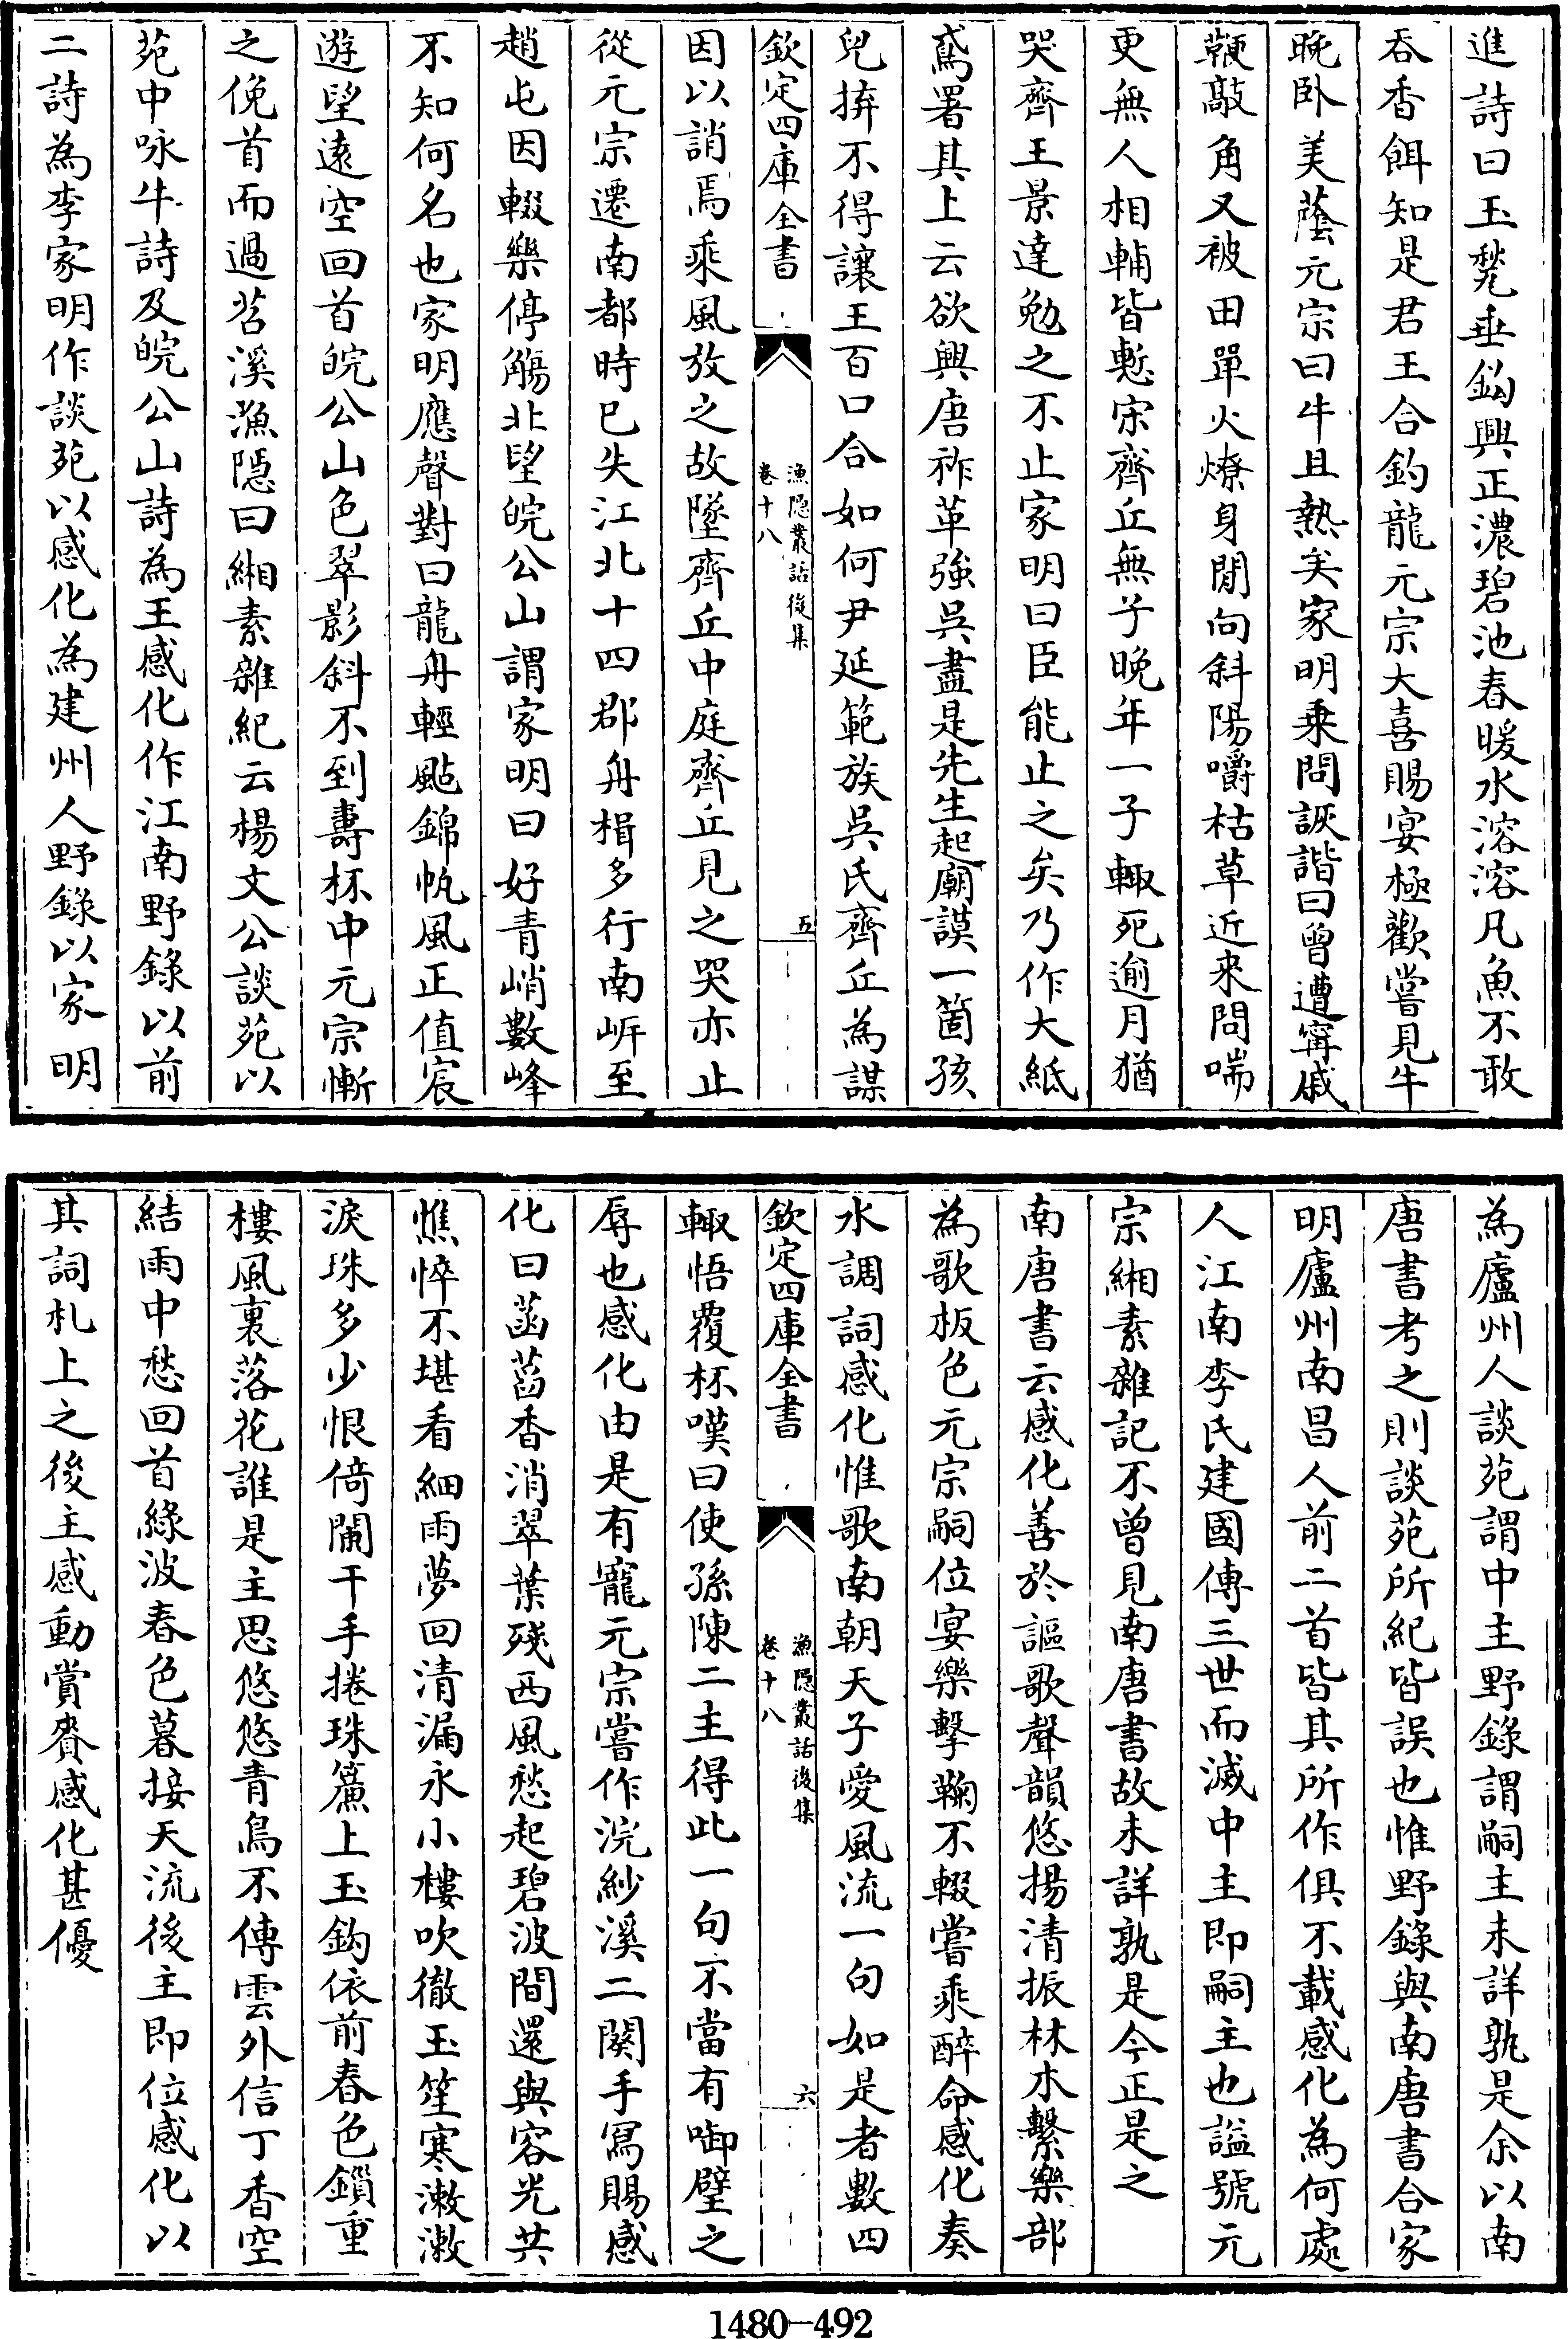 進詩曰玉甃垂鈎興正濃碧池春暖水溶溶凡魚不敢
吞香餌知是君王合釣龍元宗大喜賜宴極歡嘗見牛
晚卧美蔭元宗曰牛且熱矣家明乗問詼諧曰曾遭甯戚
鞭敲角又被田單火燎身閒向斜陽嚼枯草近來問喘
更無人相輔皆慙宋齊丘無子晚年一子輙死逾月猶
哭齊王景達勉之不止家明曰臣能止之矣乃作大紙
鳶署其上云欲興唐祚革強吳盡是先生起廟謨一箇孩
兒拚不得讓王百口合如何尹延範族吳氏齊丘為謀
欽定四庫全書
漁隱叢話後集
卷十八
五
因以誚焉乘風放之故墜齊丘中庭齊丘見之哭亦止
從元宗遷南都時已失江北十四郡舟楫多行南岍至
趙屯因輟樂停觴北望皖公山謂家明曰好青峭數峰
不知何名也家明應聲對曰龍舟輕颭錦帆風正值宸
遊望遠空回首皖公山色翠影斜不到夀杯中元宗慚
之俛首而過苕溪漁隱曰緗素雜紀云楊文公談苑以
苑中咏牛詩及皖公山詩為王感化作江南野錄以前
二詩為李家明作談苑以感化為建州人野錄以家明
為廬州人談苑謂中主野錄謂嗣主未詳孰是余以南
唐書考之則談苑所紀皆誤也惟野錄與南唐書合家
明廬州南昌人前二首皆其所作俱不載感化為何處
人江南李氏建國傳三世而滅中主即嗣主也謚號元
宗緗素雜記不曾見南唐書故未詳孰是今正是之
南唐書云感化善於謳歌聲韻悠揚清振林木繫樂部
為歌板色元宗嗣位宴樂擊鞠不輟嘗乘醉命感化奏
水調詞感化惟歌南朝天子愛風流一句如是者數四
欽定四庫全書
漁隱叢話後集
卷十八
六
輙悟覆杯嘆曰使孫陳二主得此一句不當有啣璧之
辱也感化由是有寵元宗嘗作浣紗溪二闋手寫賜感
化曰菡萏香消翠葉殘西風愁起碧波間還與容光共
憔悴不堪看細雨夢回清漏永小樓吹徹玉笙寒漱漱
淚珠多少恨倚闌干手捲珠簾上玉鈎依前春色鎻重
樓風裏落花誰是主思悠悠青鳥不傳雲外信丁香空
結雨中愁回首綠波春色暮接天流後主即位感化以
其詞札上之後主感動賞賚感化甚優
1480-492